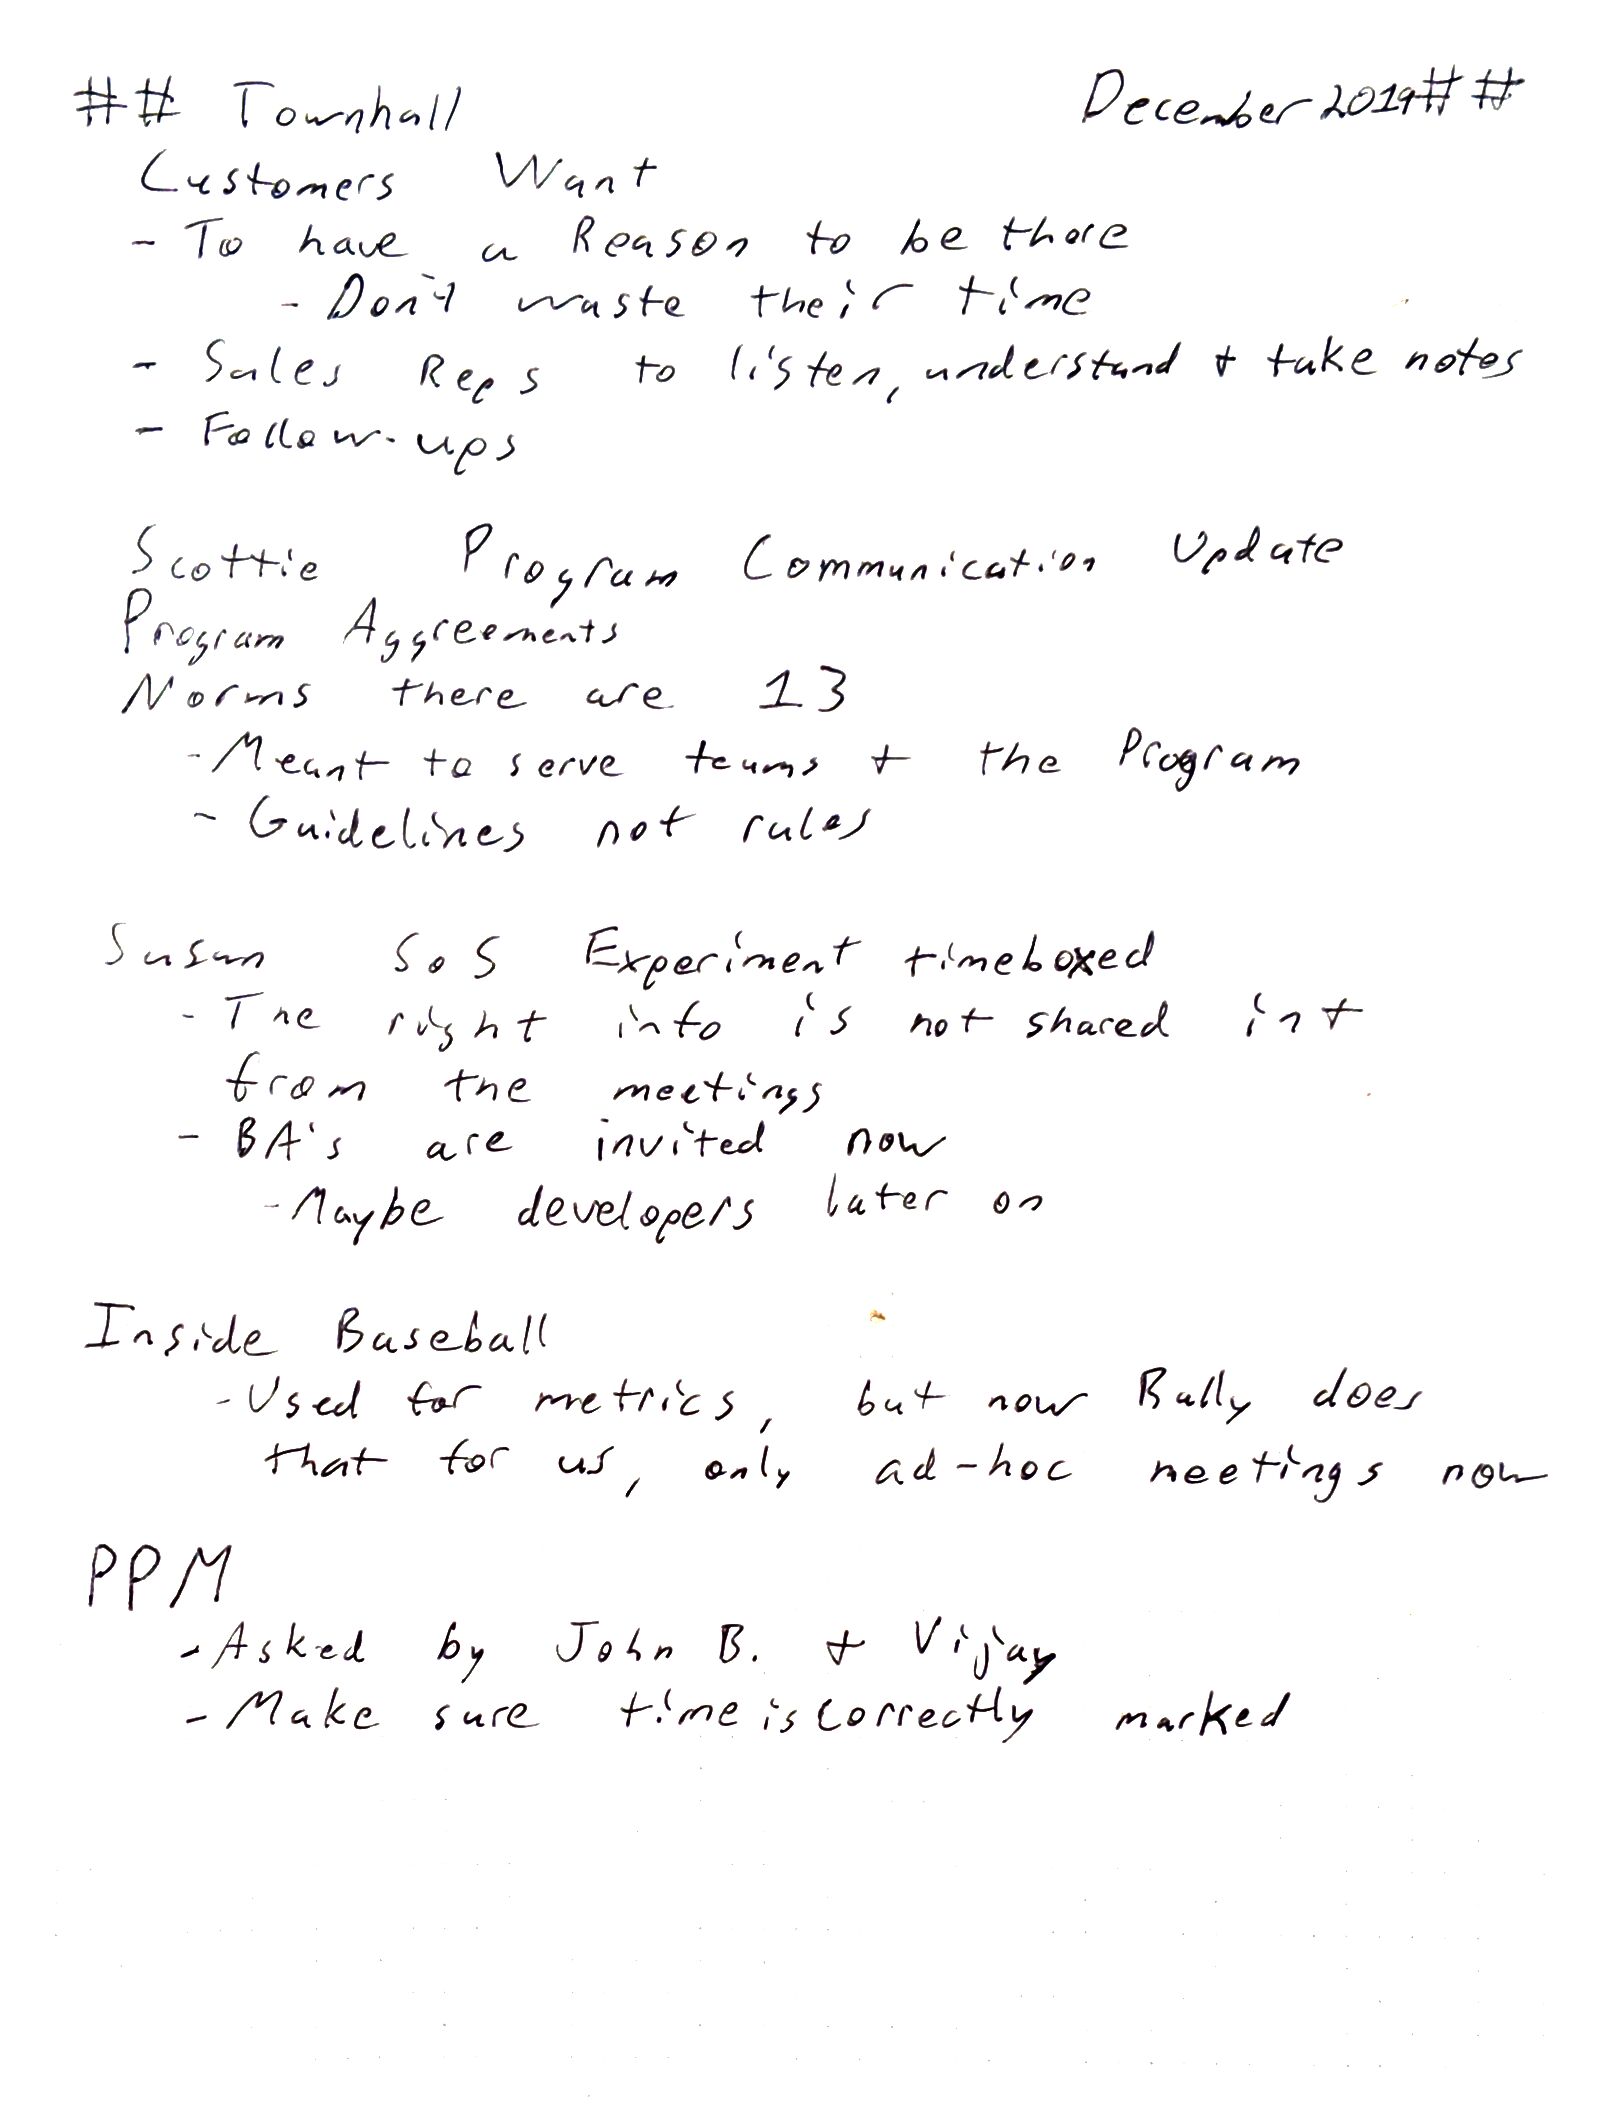 ## Townhall December 2019##
Customers Want
- To have a Reason to be there
- Don't waste their time
- Sales Reps to listen, understand + take notes
- Follow-ups
Scottie Program Communication Update
Program Aggreements
Norms there are 13
- Meant to serve teams + the Program
- Guidelines not rules
Susan SoS Experiment timeboxed
- The right info is not shared int
from the meetings
- BA's are invited now
- Maybe developers later on
Inside Baseball
- Used for metrics, but now Rally does
that for us, only ad-hoc meetings now
PPM
- Asked by John B. + Vijay
- Make sure time is correctly marked